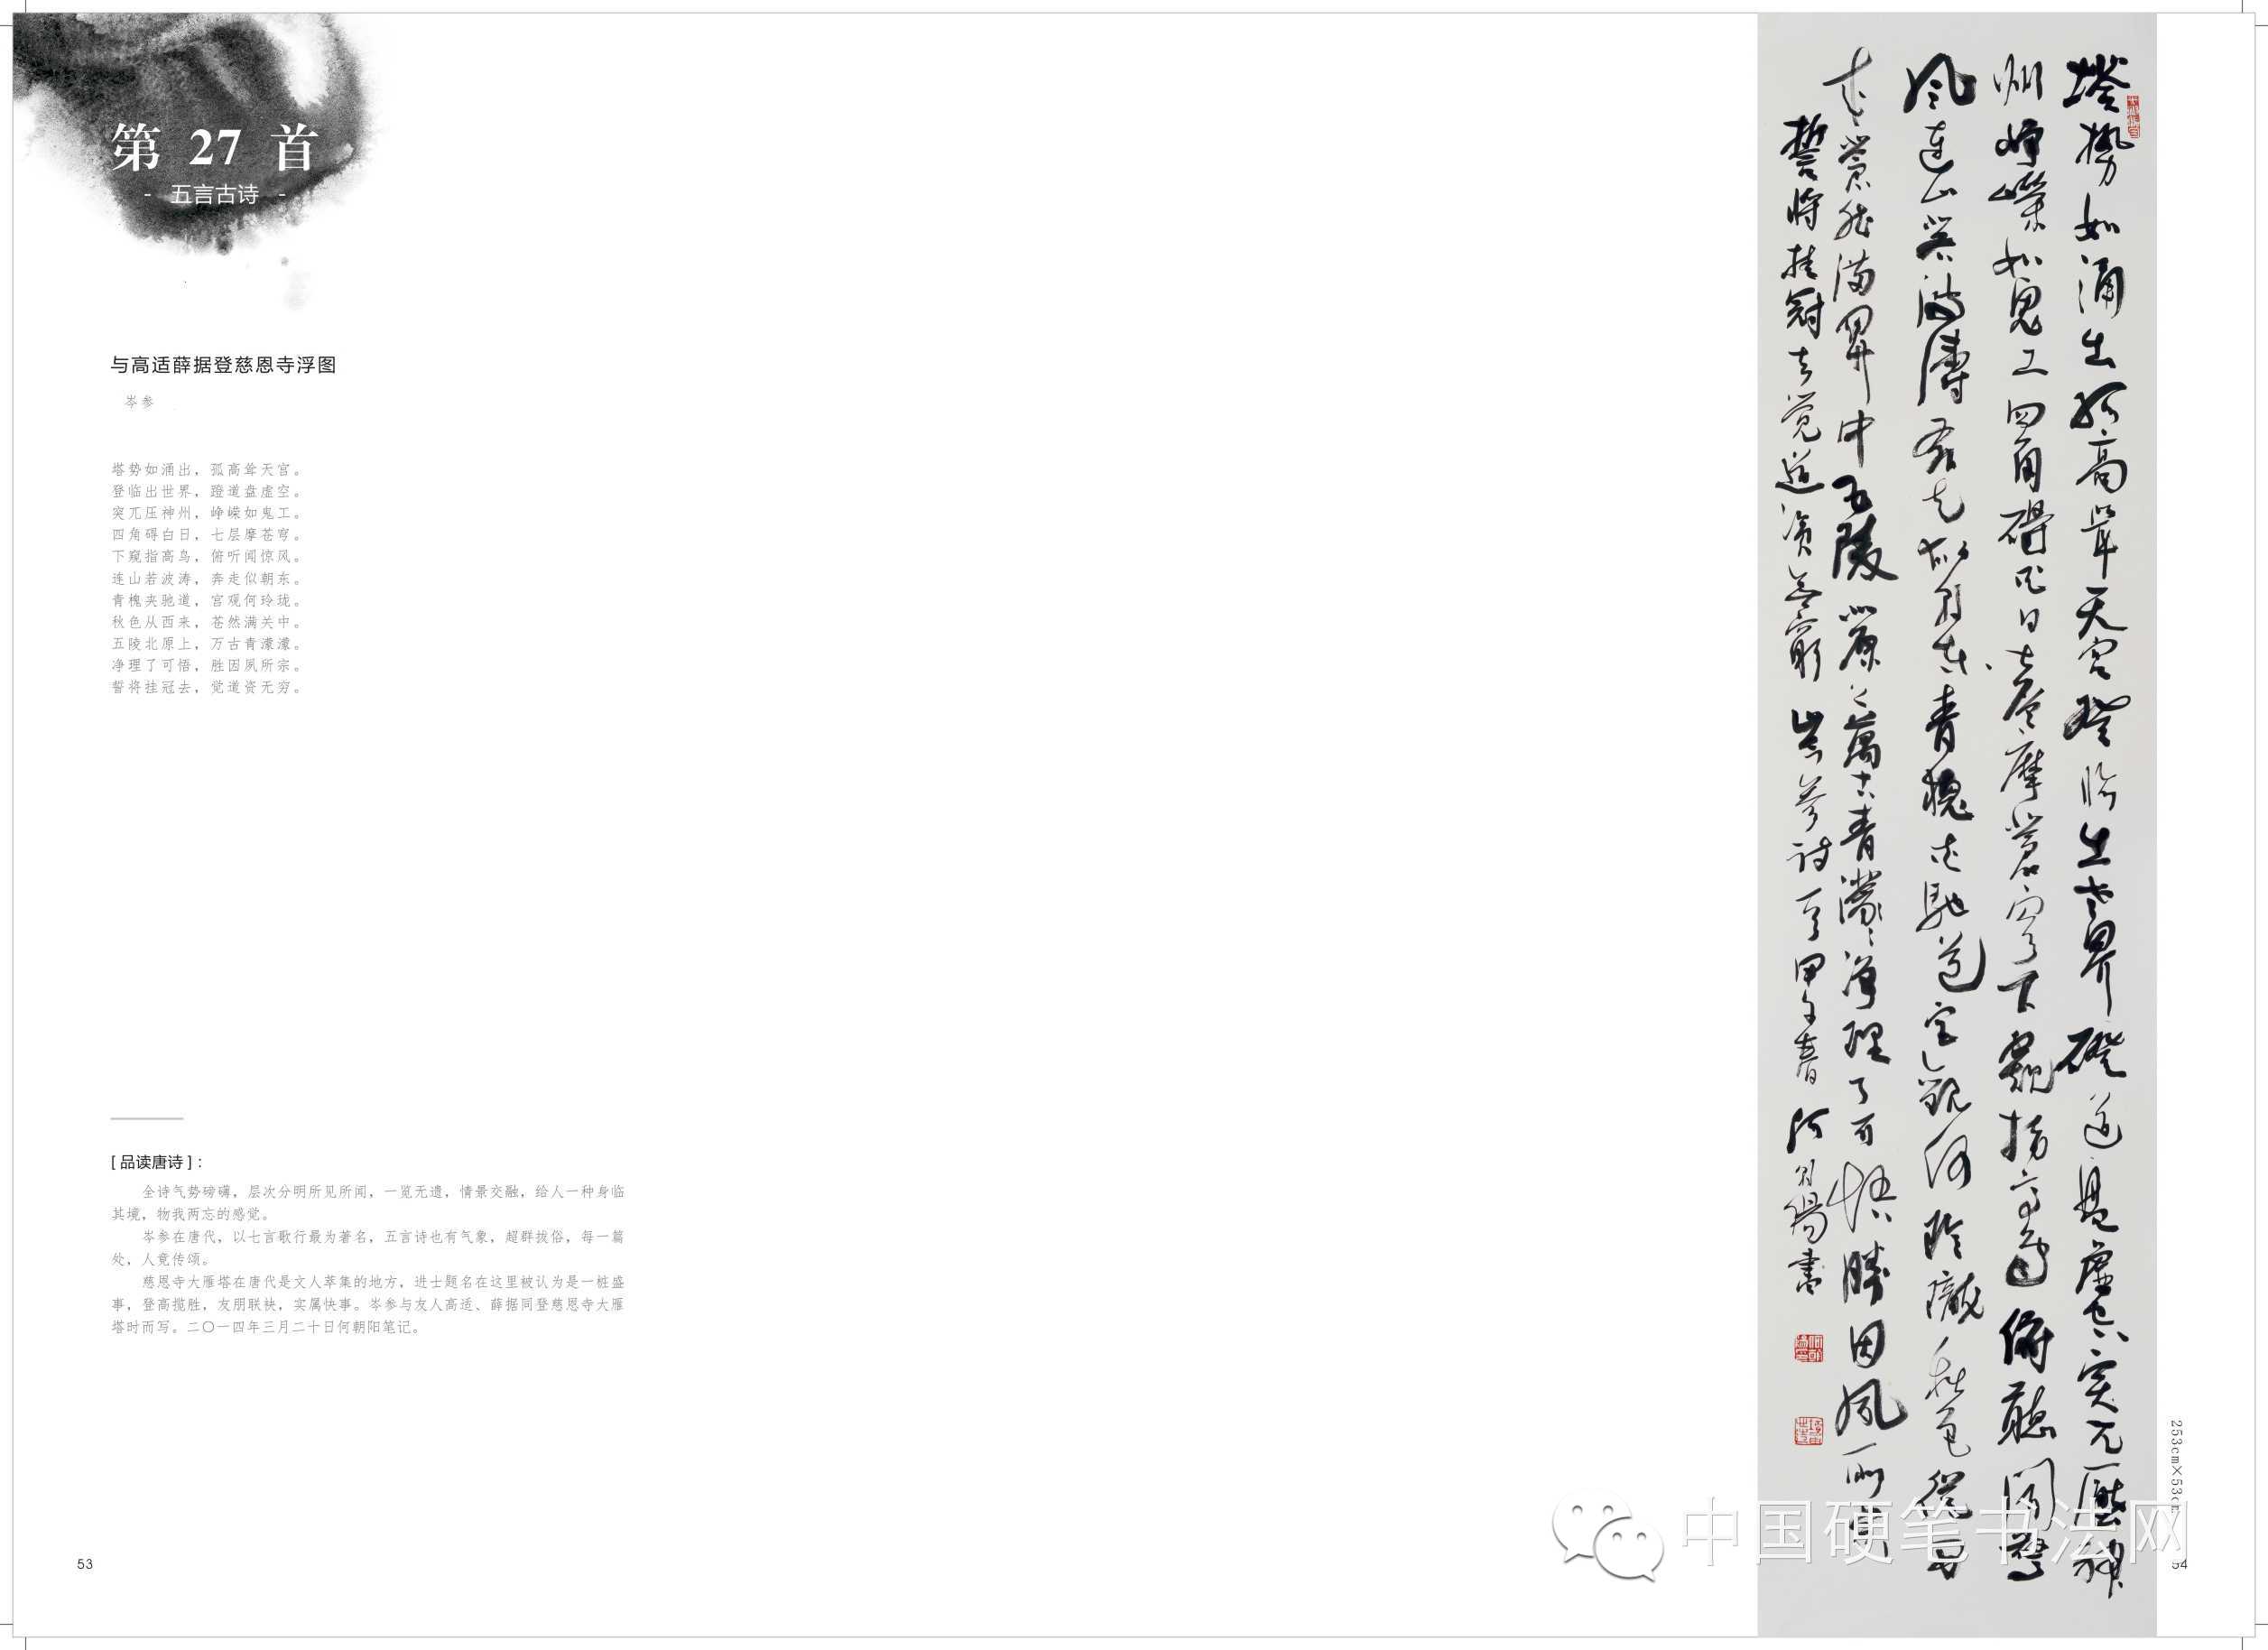 第 27 首
- 五言古诗 -
与高适薛据登慈恩寺浮图
岑参
塔势如涌出，孤高耸天宫。
登临出世界，蹬道盘虚空。
突兀压神州，峥嵘如鬼工。
四角碍白日，七层摩苍穹。
下窥指高鸟，俯听闻惊风。
连山若波涛，奔走似朝东。
青槐夹驰道，宫观何玲珑。
秋色从西来，苍然满关中。
五陵北原上，万古青濛濛。
净理了可悟，胜因夙所宗。
誓将挂冠去，觉道资无穷。
[ 品读唐诗 ]：
全诗气势磅礴，层次分明所见所闻，一览无遗，情景交融，给人一种身临
其境，物我两忘的感觉。
岑参在唐代，以七言歌行最为著名，五言诗也有气象，超群拔俗，每一篇
处，人竞传颂。
慈恩寺大雁塔在唐代是文人萃集的地方，进士题名在这里被认为是一桩盛
事，登高揽胜，友朋联袂，实属快事。岑参与友人高适、薛据同登慈恩寺大雁
塔时而写。二〇一四年三月二十日何朝阳笔记。
53
塔勢如涌出孤高聳天宮登臨出世界磴道盤虛空突兀壓神
州崢嶸如鬼工四角礙白日七層摩蒼穹下窺指高鳥俯聽聞驚
風連山若波濤奔走似朝東青槐夾馳道宮觀何玲瓏秋色從西
來蒼然滿關中五陵北原上萬古青濛濛淨理了可悟勝因夙所宗
誓將挂冠去覺道資無窮 岑參詩一首甲午春 何朝陽書
253cm×53cm
54
中国硬笔书法网